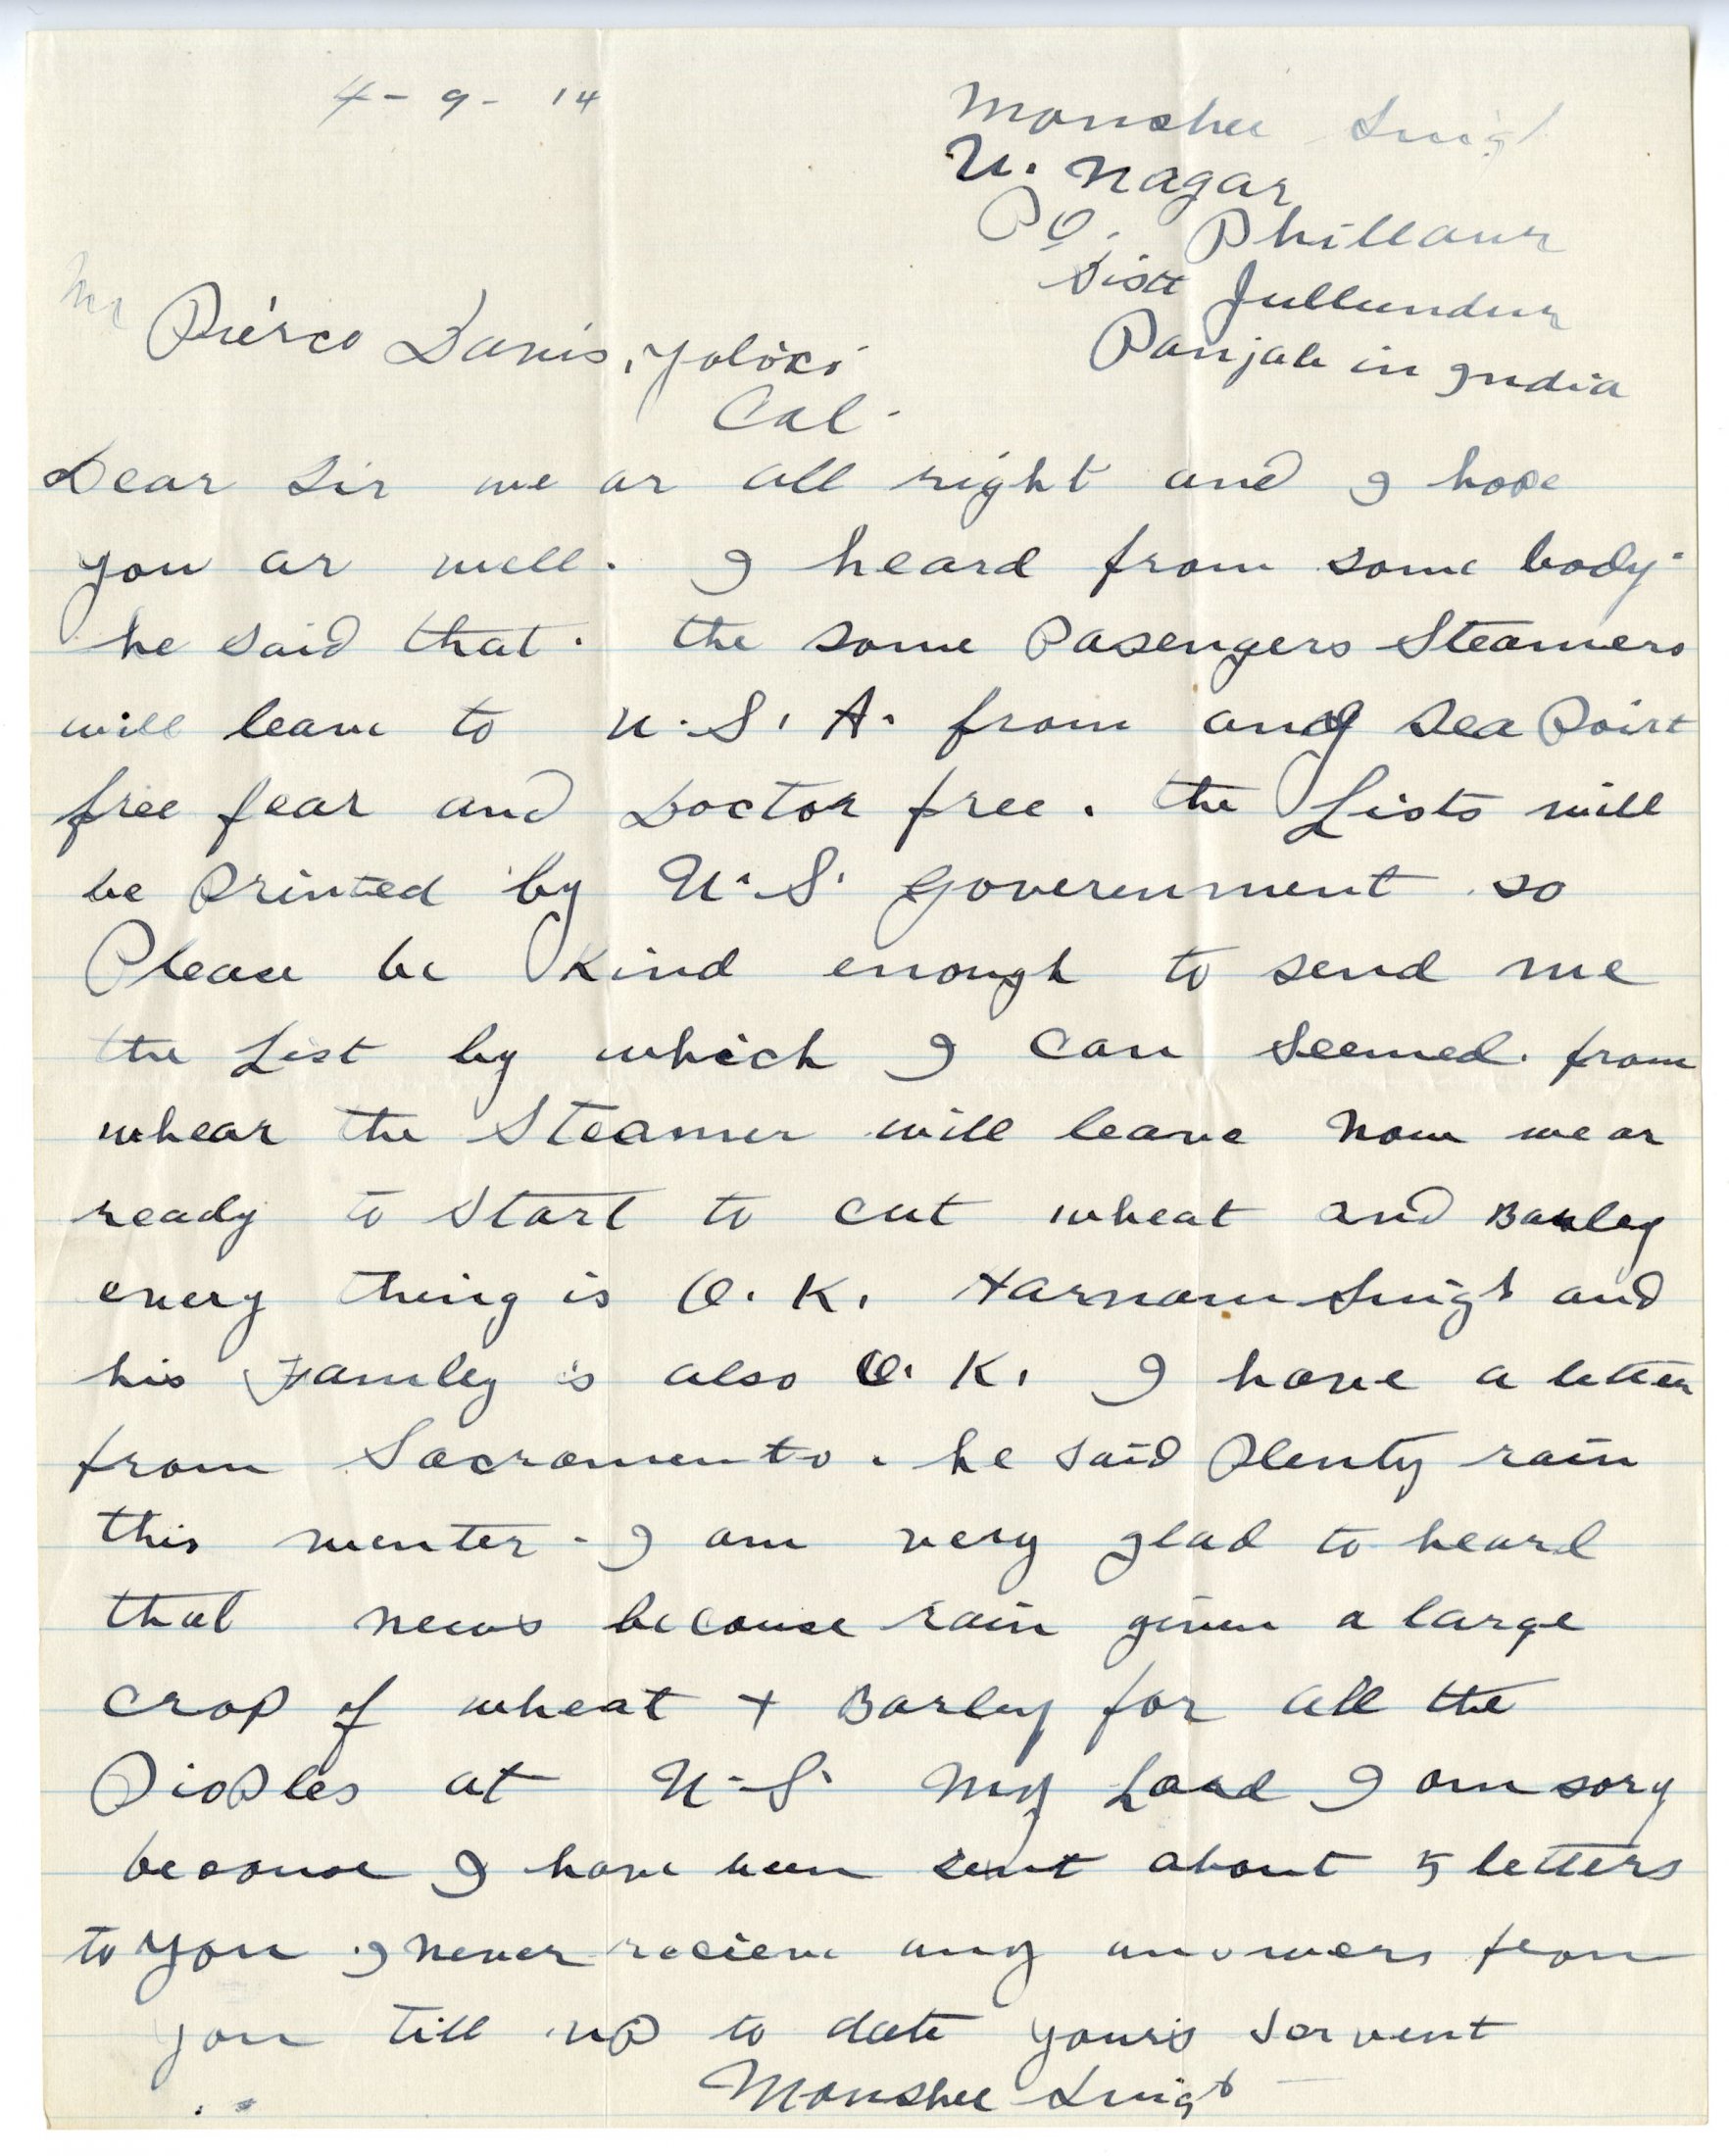 4 - 9 - 14
Monshee Singh
U. Nagar
P.O. Phillaur
Distt Jullundur
Panjab in India
Mr Pierce Davis, yolo co
Cal.
Dear Sir we ar all right and I hope
you ar well. I heard from some body.
he said that. the some Pasengers Steamers
will leave to U.S.A. from any sea Poirt
free fear and Doctor free. the Lists will
be Printed by U.S. government so
Please be Kind enough to send me
the List by which I can seemed. from
whear the Steamer will leave now we ar
ready to start to cut wheat and Barley
every thing is O.K. Harnam Singh and
his Famley is also O.K. I have a letter
from Sacramento. he said Plenty rain
this wenter - I am very glad to heard
that news because rain given a large
crop of wheat + Barley for all the
Pioples at U.S. My Lard I am sory
because I have been sent about 5 letters
to you I never recieve any answers from
you till up to date yours servent
Monshee Singh